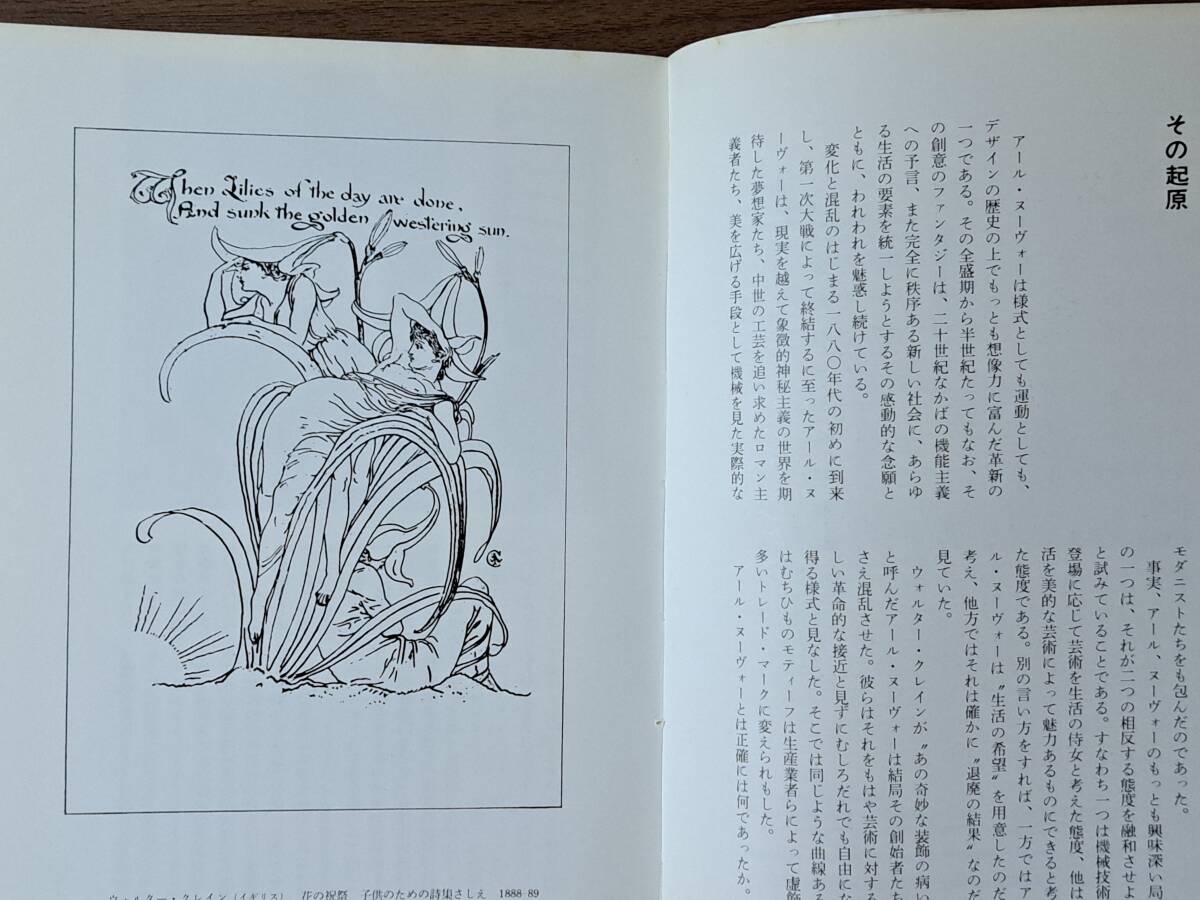 When Lilies of the day are done,
And sunk the golden westering sun.
ウォルター・クレイン（イギリス） 花の祝祭 子供のための詩集さしえ 1888-89
その起原
アール・ヌーヴォーは様式としても運動としても、
デザインの歴史の上でもっとも想像力に富んだ革新の
一つである。その全盛期から半世紀たってもなお、そ
の創意のファンタジーは、二十世紀なかばの機能主義
への予言、また完全に秩序ある新しい社会に、あらゆ
る生活の要素を統一しようとするその感動的な念願と
ともに、われわれを魅惑し続けている。
変化と混乱のはじまる一八八〇年代の初めに到来
し、第一次大戦によって終結するに至ったアール・ヌ
ーヴォーは、現実を越えて象徴的神秘主義の世界を期
待した夢想家たち、中世の工芸を追い求めたロマン主
義者たち、美を広げる手段として機械を見た実際的な
モダニストたちをも包んだのであった。
事実、アール、ヌーヴォーのもっとも興味深い局
の一つは、それが二つの相反する態度を融和させよ
と試みていることである。すなわち一つは機械技術
登場に応じて芸術を生活の侍女と考えた態度、他は
活を美的な芸術によって魅力あるものにできると考
た態度である。別の言い方をすれば、一方ではア
ル・ヌーヴォーは〝生活の希望〟を用意したのだ
考え、他方ではそれは確かに〝退廃の結果〟なのだ
見ていた。
ウォルター・クレインが〝あの奇妙な装飾の病い
と呼んだアール・ヌーヴォーは結局その創始者たち
さえ混乱させた。彼らはそれをもはや芸術に対する
しい革命的な接近と見ずにむしろだれでも自由にな
得る様式と見なした。そこでは同じような曲線ある
はむちひものモティーフは生産業者らによって虚飾
多いトレード・マークに変えられもした。
アール・ヌーヴォーとは正確には何であったか。